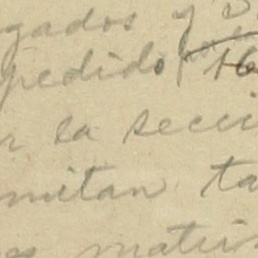 gados y
pedido
r la secci
mitan ta
es matri